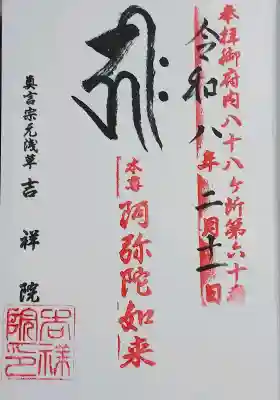 奉拝御府内八十八ヶ所第六十番
令和八年二月十一日
本尊
阿弥陀如来
真言宗元浅草
吉祥院
吉祥院印